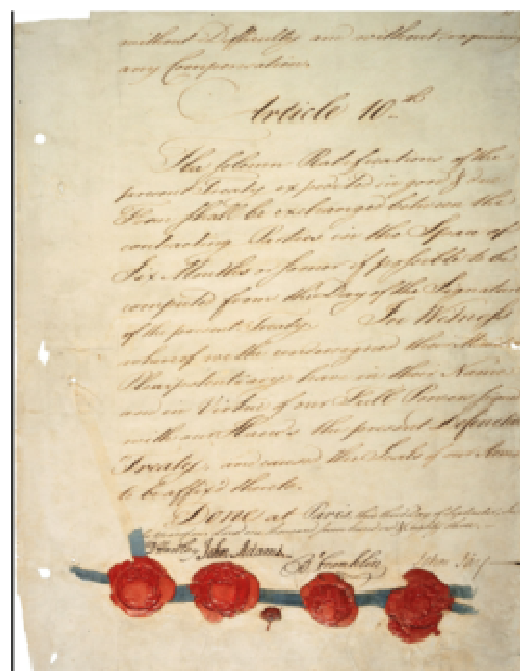 without Difficulty and without requiring
any Compensation.
Article 10th
The solemn Ratifications of the
present Treaty expedited in good & due
Form shall be exchanged between the
contracting Parties in the Space of
Six Months or sooner if possible to be
computed from the Day of the Signature
of the present Treaty. In Witness
whereof we the undersigned their Ministers
Plenipotentiary have in their Name
and in Virtue of our Full Powers signed
with our Hands the present Definitive
Treaty, and caused the Seals of our Arms
to be affix'd thereto.
Done at Paris, this third Day of September,
D Hartley John Adams B Franklin John Jay